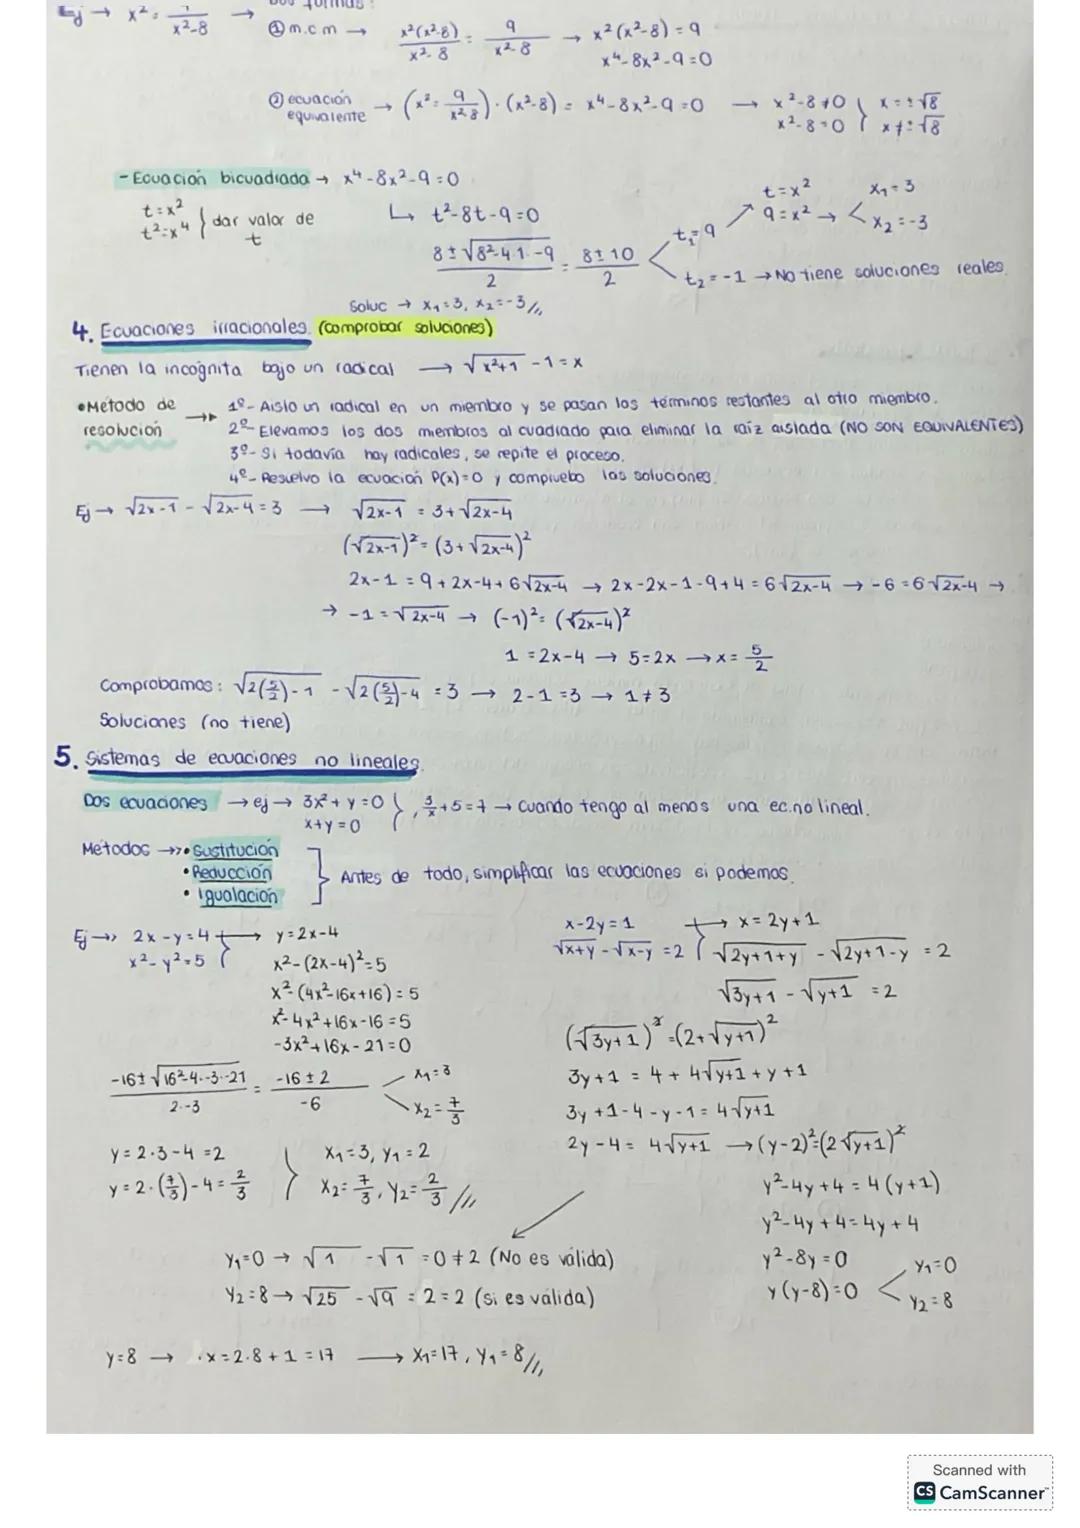 Ej → x² = 9/(x²-8) → Dos formas:
① m.c.m → x²(x²-8)/(x²-8) = 9/(x²-8) → x²(x²-8) = 9
x⁴-8x²-9=0
② ecuación equivalente → (x² = 9/(x²-8))·(x²-8) = x⁴-8x²-9=0 → x²-8≠0 } x=±√8
x²-8=0 } x≠±√8
- Ecuación bicuadrada → x⁴-8x²-9=0
t=x²
t²=x⁴ } dar valor de t
↳ t²-8t-9=0
(8±√(8²-4·1·-9))/2 = (8±10)/2
t₁=9 ↗ t=x²
9=x² → x₁=3
x₂=-3
t₂=-1 → No tiene soluciones reales
Soluc → x₁=3, x₂=-3 //,
4. Ecuaciones irracionales. (comprobar soluciones)
Tienen la incógnita bajo un radical → √(x²+1) -1=x
• Método de resolución →
1º- Aislo un radical en un miembro y se pasan los términos restantes al otro miembro.
2º- Elevamos los dos miembros al cuadrado para eliminar la raíz aislada (NO SON EQUIVALENTES)
3º- Si todavía hay radicales, se repite el proceso.
4º- Resuelvo la ecuación P(x)=0 y compruebo las soluciones.
Ej → √(2x-1) - √(2x-4) = 3 → √(2x-1) = 3+√(2x-4)
(√(2x-1))² = (3+√(2x-4))²
2x-1 = 9+2x-4+6√(2x-4) → 2x-2x-1-9+4 = 6√(2x-4) → -6=6√(2x-4) →
→ -1=√(2x-4) → (-1)² = (√(2x-4))²
1=2x-4 → 5=2x → x=5/2
Comprobamos: √(2(5/2)-1) - √(2(5/2)-4) = 3 → 2-1=3 → 1≠3
Soluciones (no tiene)
5. Sistemas de ecuaciones no lineales.
Dos ecuaciones → ej → 3x²+y=0 } , 3/x+5=7 → cuando tengo al menos una ec. no lineal.
x+y=0
Métodos → • Sustitución
• Reducción
• Igualación
} Antes de todo, simplificar las ecuaciones si podemos.
Ej → 2x-y=4 → y=2x-4
x²-y²=5
x²-(2x-4)²=5
x²-(4x²-16x+16)=5
x²-4x²+16x-16=5
-3x²+16x-21=0
(-16±√(16²-4·-3·-21))/(2·-3) = (-16±2)/-6
x₁=3
x₂=7/3
y=2·3-4=2
y=2·(7/3)-4=2/3
} x₁=3, y₁=2
x₂=7/3, y₂=2/3 //,
x-2y=1 → x=2y+1
√(x+y) - √(x-y) = 2 } √(2y+1+y) - √(2y+1-y) = 2
√(3y+1) - √(y+1) = 2
(√(3y+1))² = (2+√(y+1))²
3y+1 = 4+4√(y+1)+y+1
3y+1-4-y-1=4√(y+1)
2y-4=4√(y+1) → (y-2)²=(2√(y+1))²
y²-4y+4=4(y+1)
y²-4y+4=4y+4
y²-8y=0
y(y-8)=0
y₁=0
y₂=8
y₁=0 → √1 - √1 = 0≠2 (No es válida)
y₂=8 → √25 - √9 = 2=2 (si es válida)
y=8 → x=2·8+1=17 → x₁=17, y₁=8 //,
Scanned with
CS CamScanner